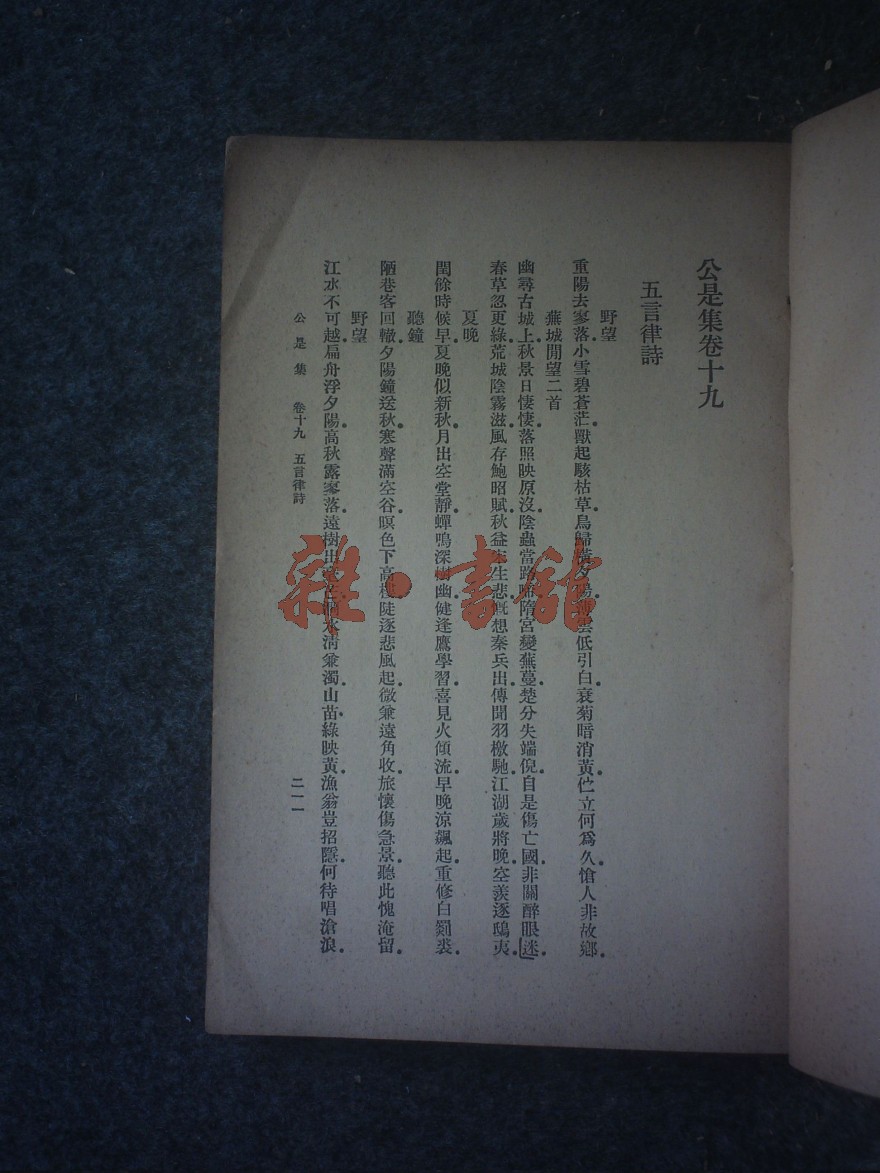 公是集卷十九
五言律詩
野望
重陽去寥落小雪碧蒼茫獸起駭枯草鳥歸橫夕陽 雲低引白衰菊暗消黃伫立何爲久傖人非故鄉
蕪城閒望二首
幽尋古城上秋景日悽悽落照映原沒陰蟲當路啼隋宮變蕪蔓楚分失端倪自是傷亡國非關醉眼迷
春草忽更綠荒城陰霧滋風存鮑昭賦秋益 生悲慨想秦兵出傳聞羽檄馳江湖歲將晚空羨逐鴟夷
夏晚
閏餘時候早夏晚似新秋月出空堂靜蟬鳴深樹幽健逢鷹學習喜見火傾流早晚涼飆起重修白罽裘
聽鐘
陋巷客回轍夕陽鐘送秋寒聲滿空谷暝色下高樓陡逐悲風起微兼遠角收旅懷傷急景聽此愧淹留
野望
江水不可越扁舟浮夕陽高秋露寥落遠樹出 水清兼濁山苗綠映黃漁翁豈招隱何待唱滄浪
公是集 卷十九 五言律詩
二一一
雜·書館